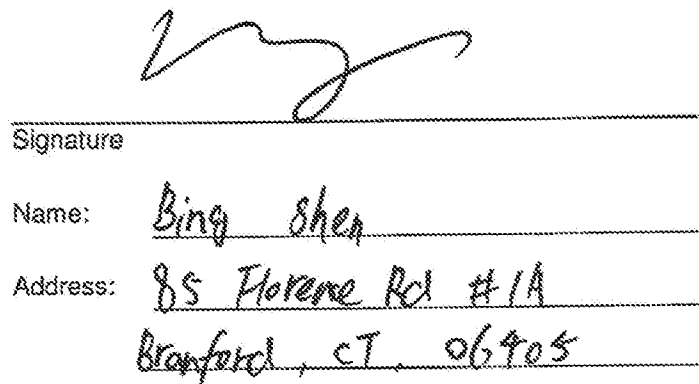 Signature
Name: Bing Shen
Address: 85 Florence Rd #1A
Branford, CT, 06405